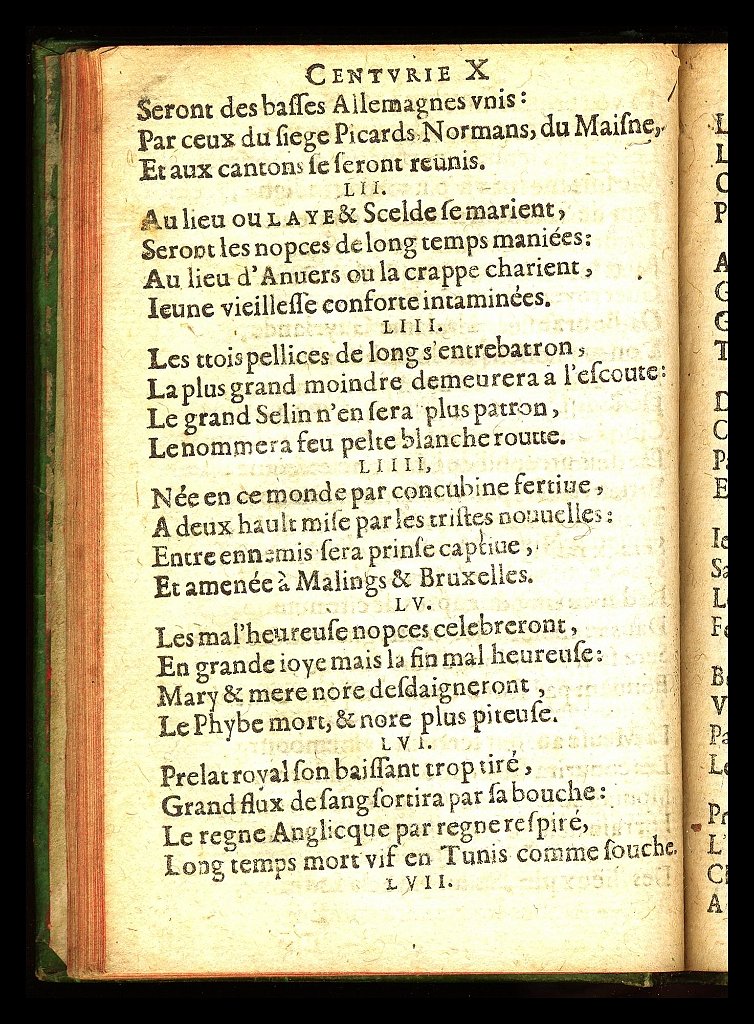 CENTVRIE X
Seront des baſſes Allemagnes vnis:
Par ceux du ſiege Picards Normans, du Maiſne,
Et aux cantons ſe ſeront reünis.
LII.
Au lieu ou LAYE & Scelde ſe marient,
Seront les nopces de long temps maniées:
Au lieu d'Anuers ou la crappe charient,
Ieune vieilleſſe conforte intaminées.
LIII.
Les ttois pellices de long s'entrebatron,
La plus grand moindre demeurera a l'eſcoute:
Le grand Selin n'en ſera plus patron,
Le nommera feu pelte blanche routte.
LIIII,
Née en ce monde par concubine fertiue,
A deux hault miſe par les triſtes nouuelles:
Entre ennemis ſera prinſe captiue,
Et amenée à Malings & Bruxelles.
LV.
Les mal'heureuſe nopces celebreront,
En grande ioye mais la fin mal heureuſe:
Mary & mere nore deſdaigneront,
Le Phybe mort, & nore plus piteuſe.
LVI.
Prelat royal ſon baiſſant trop tiré,
Grand flux de ſang ſortira par ſa bouche:
Le regne Anglicque par regne reſpiré,
Long temps mort vif en Tunis comme ſouche.
LVII.